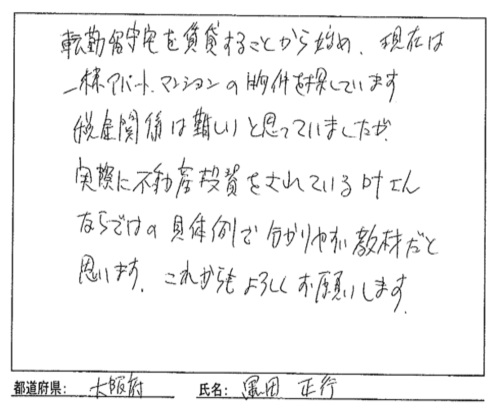 転勤留守宅を賃貸することから始め、現在は
一棟アパート、マンションの物件を探しています
税金関係は難しいと思っていましたが、
実際に不動産投資をされている叶さん
ならではの具体例で分かりやすい教材だと
思います。これからもよろしくお願いします。
都道府県: 大阪府 氏名: 黒田 正行